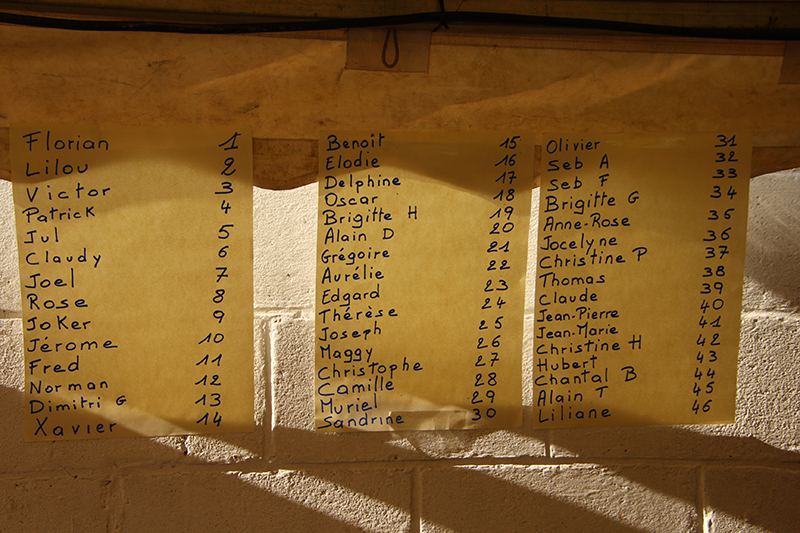 Florian 1
Lilou 2
Victor 3
Patrick 4
Jul 5
Claudy 6
Joel 7
Rose 8
JoKer 9
Jérome 10
Fred 11
Norman 12
Dimitri G 13
Xavier 14
Benoît 15
Elodie 16
Delphine 17
Oscar 18
Brigitte H 19
Alain D 20
Grégoire 21
Aurélie 22
Edgard 23
Thérèse 24
Joseph 25
Maggy 26
Christophe 27
Camille 28
Muriel 29
Sandrine 30
Olivier 31
Seb A 32
Seb F 33
Brigitte G 34
Anne-Rose 35
Jocelyne 36
Christine P 37
Thomas 38
Claude 39
Jean-Pierre 40
Jean-Marie 41
Christine H 42
Hubert 43
Chantal B 44
Alain T 45
Liliane 46